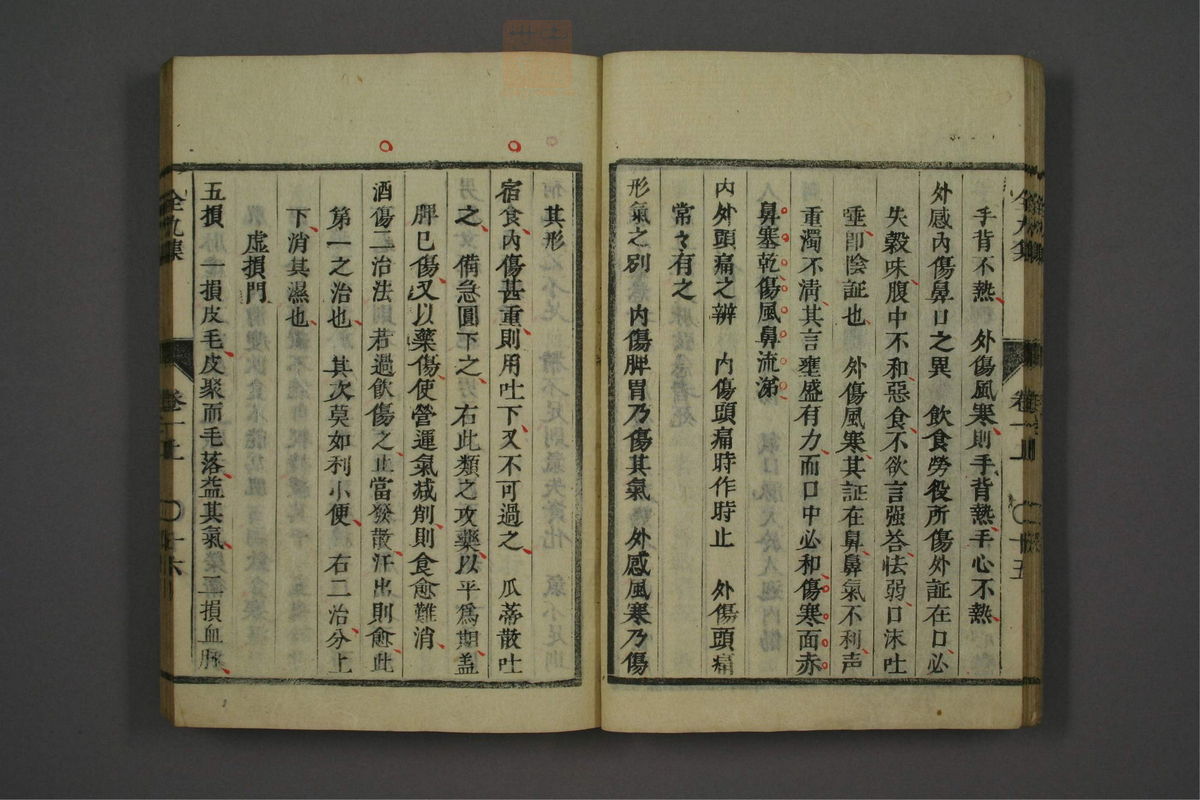 手背不熱　外傷風寒則手背熱手心不熱
外感內傷鼻口之異　飲食勞役所傷外証在口必
失穀味腹中不和惡食不欲言强荅怯弱口沫吐
唾卽陰証也　外傷風寒其証在鼻鼻氣不利声
重濁不清其言壅盛有力而口中必和傷寒面赤
鼻塞乾傷風鼻流涕
內外頭痛之辨　內傷頭痛時作時止　外傷頭痛
常々有之
形氣之別　內傷脾胃乃傷其氣　外感風寒乃傷
全九集　卷一上　十五
其形
宿食內傷甚重則用吐下又不可過之　瓜蒂散吐
之　備急圓下之　右此類之攻藥以平爲期盖
脾巳傷又以藥傷使營運氣减削則食愈難消
酒傷二治法　若過飮傷之止當發散汗出則愈此
第一之治也　其次莫如利小便　右二治分上
下消其濕也
虛損門
五損　一損皮毛皮聚而毛落益其氣　二損血脉
全九集　卷一上　十六